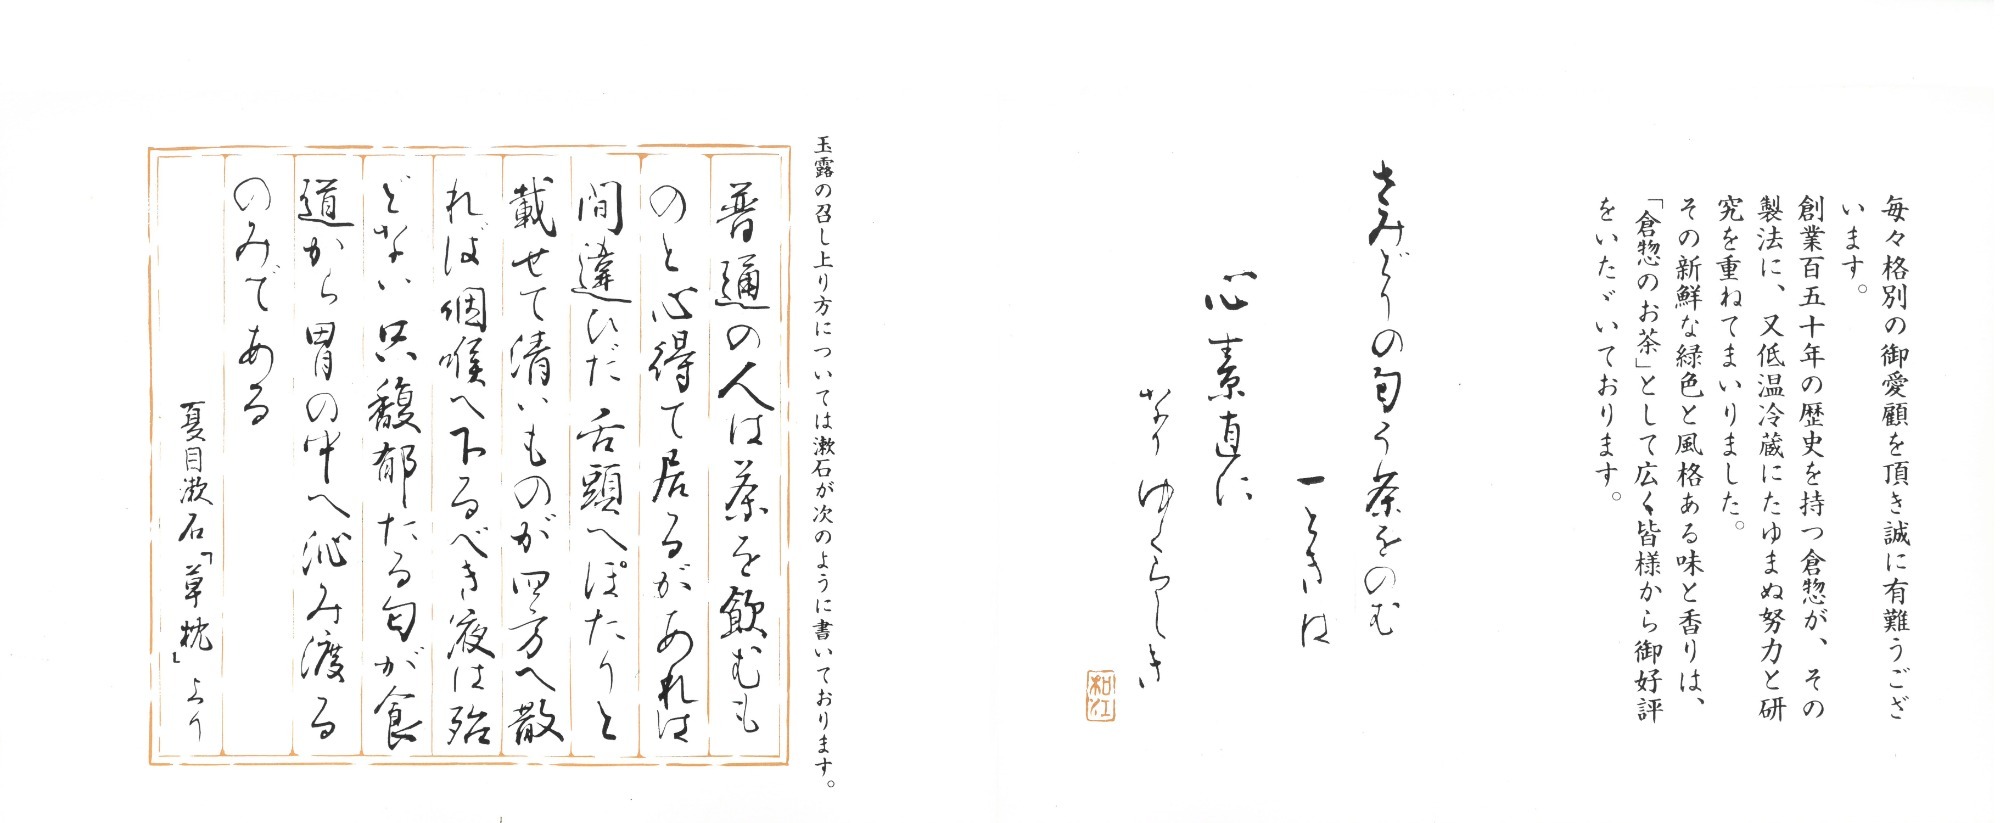 毎々格別の御愛顧を頂き誠に有難うござ
います。
創業百五十年の歴史を持つ倉惣が、その
製法に、又低温冷蔵にたゆまぬ努力と研
究を重ねてまいりました。
その新鮮な緑色と風格ある味と香りは、
「倉惣のお茶」として広く皆様から御好評
をいたゞいております。
さみどりの匂う茶をのむ
一ときは
心素直に
なりゆくらしき
和江
玉露の召し上り方については漱石が次のように書いております。
普通の人は茶を飲むも
のと心得て居るがあれは
間違ひだ舌頭へぽたりと
載せて清いものが四方へ散
れば咽喉へ下るべき液は殆
どない只馥郁たる匂が食
道から胃の中へ沁み渡る
のみである
夏目漱石「草枕」より